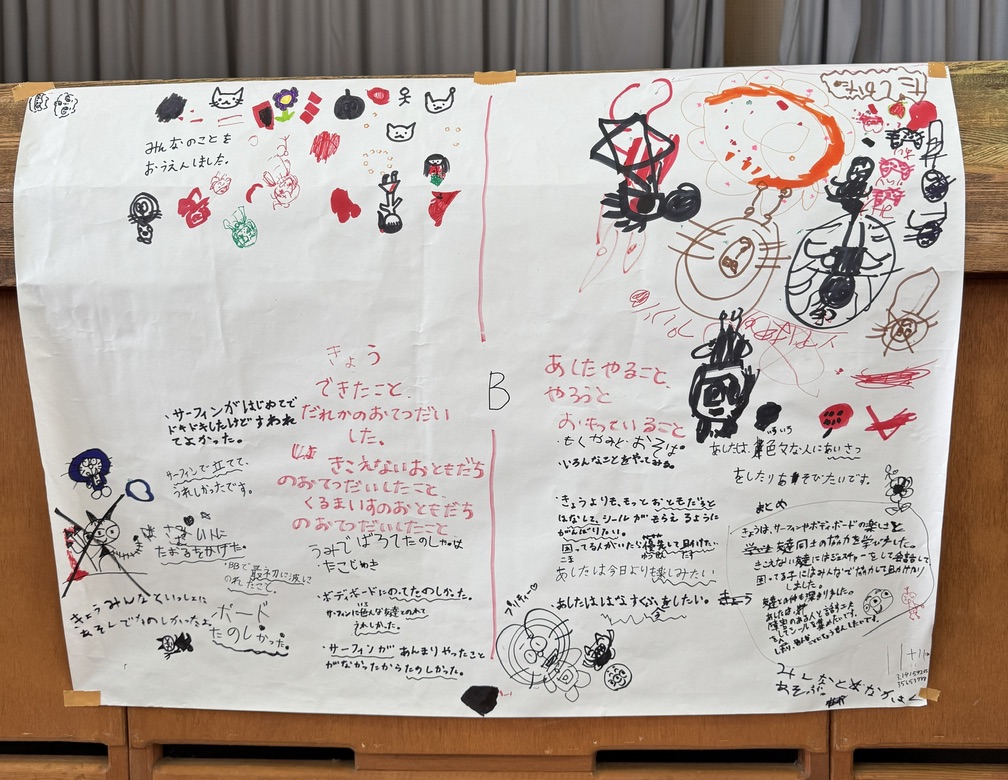 みんなのことを
おうえんしました。
きょう
できたこと、
だれかのおてつだい
した。
きこえないおともだち
のおてつだいしたこと、
くるまいすのおともだち
のおてつだいしたこと
・サーフィンがはじめてで
ドキドキしたけどすわれ
てよかった。
サーフィンで立てて、
うれしかったです。
たおるをかけた。
・BBで最初に波に
のれたこと。
きょうみんなといっしょに
あそんでたのしかったよ。
ボード
たのしかった。
うみで
・ボディボードにのってたのしかった。
サーフィンに色んな友達とのれて
うれしかった。
・サーフィンがあんまりやったこと
がなかったからたのしかった。
B
あしたやること、
やろうと
おもっていること
・いろんなことをやってみる。
・きょうよりも、もっとおともだちと
はなして、シールがもらえるように
がんばりたい。
困ってる人がいたら優先して助けたい
あしたは今日より楽しみたい
・あしたははなすくふをしたい。
プリティー♡
あしたは、色々な人にあいさつ
をしたりあそびたいです。
まとめ
きょうは、サーフィンやボディボードの楽しさと
友達同士の協力を学びました。
きこえない友達にはジェスチャーをして会話して
困ってる子にはみんなで協力して助けたり
しました。
友達との仲も深まりました。
あしたは、
みんなと
あそぶ。